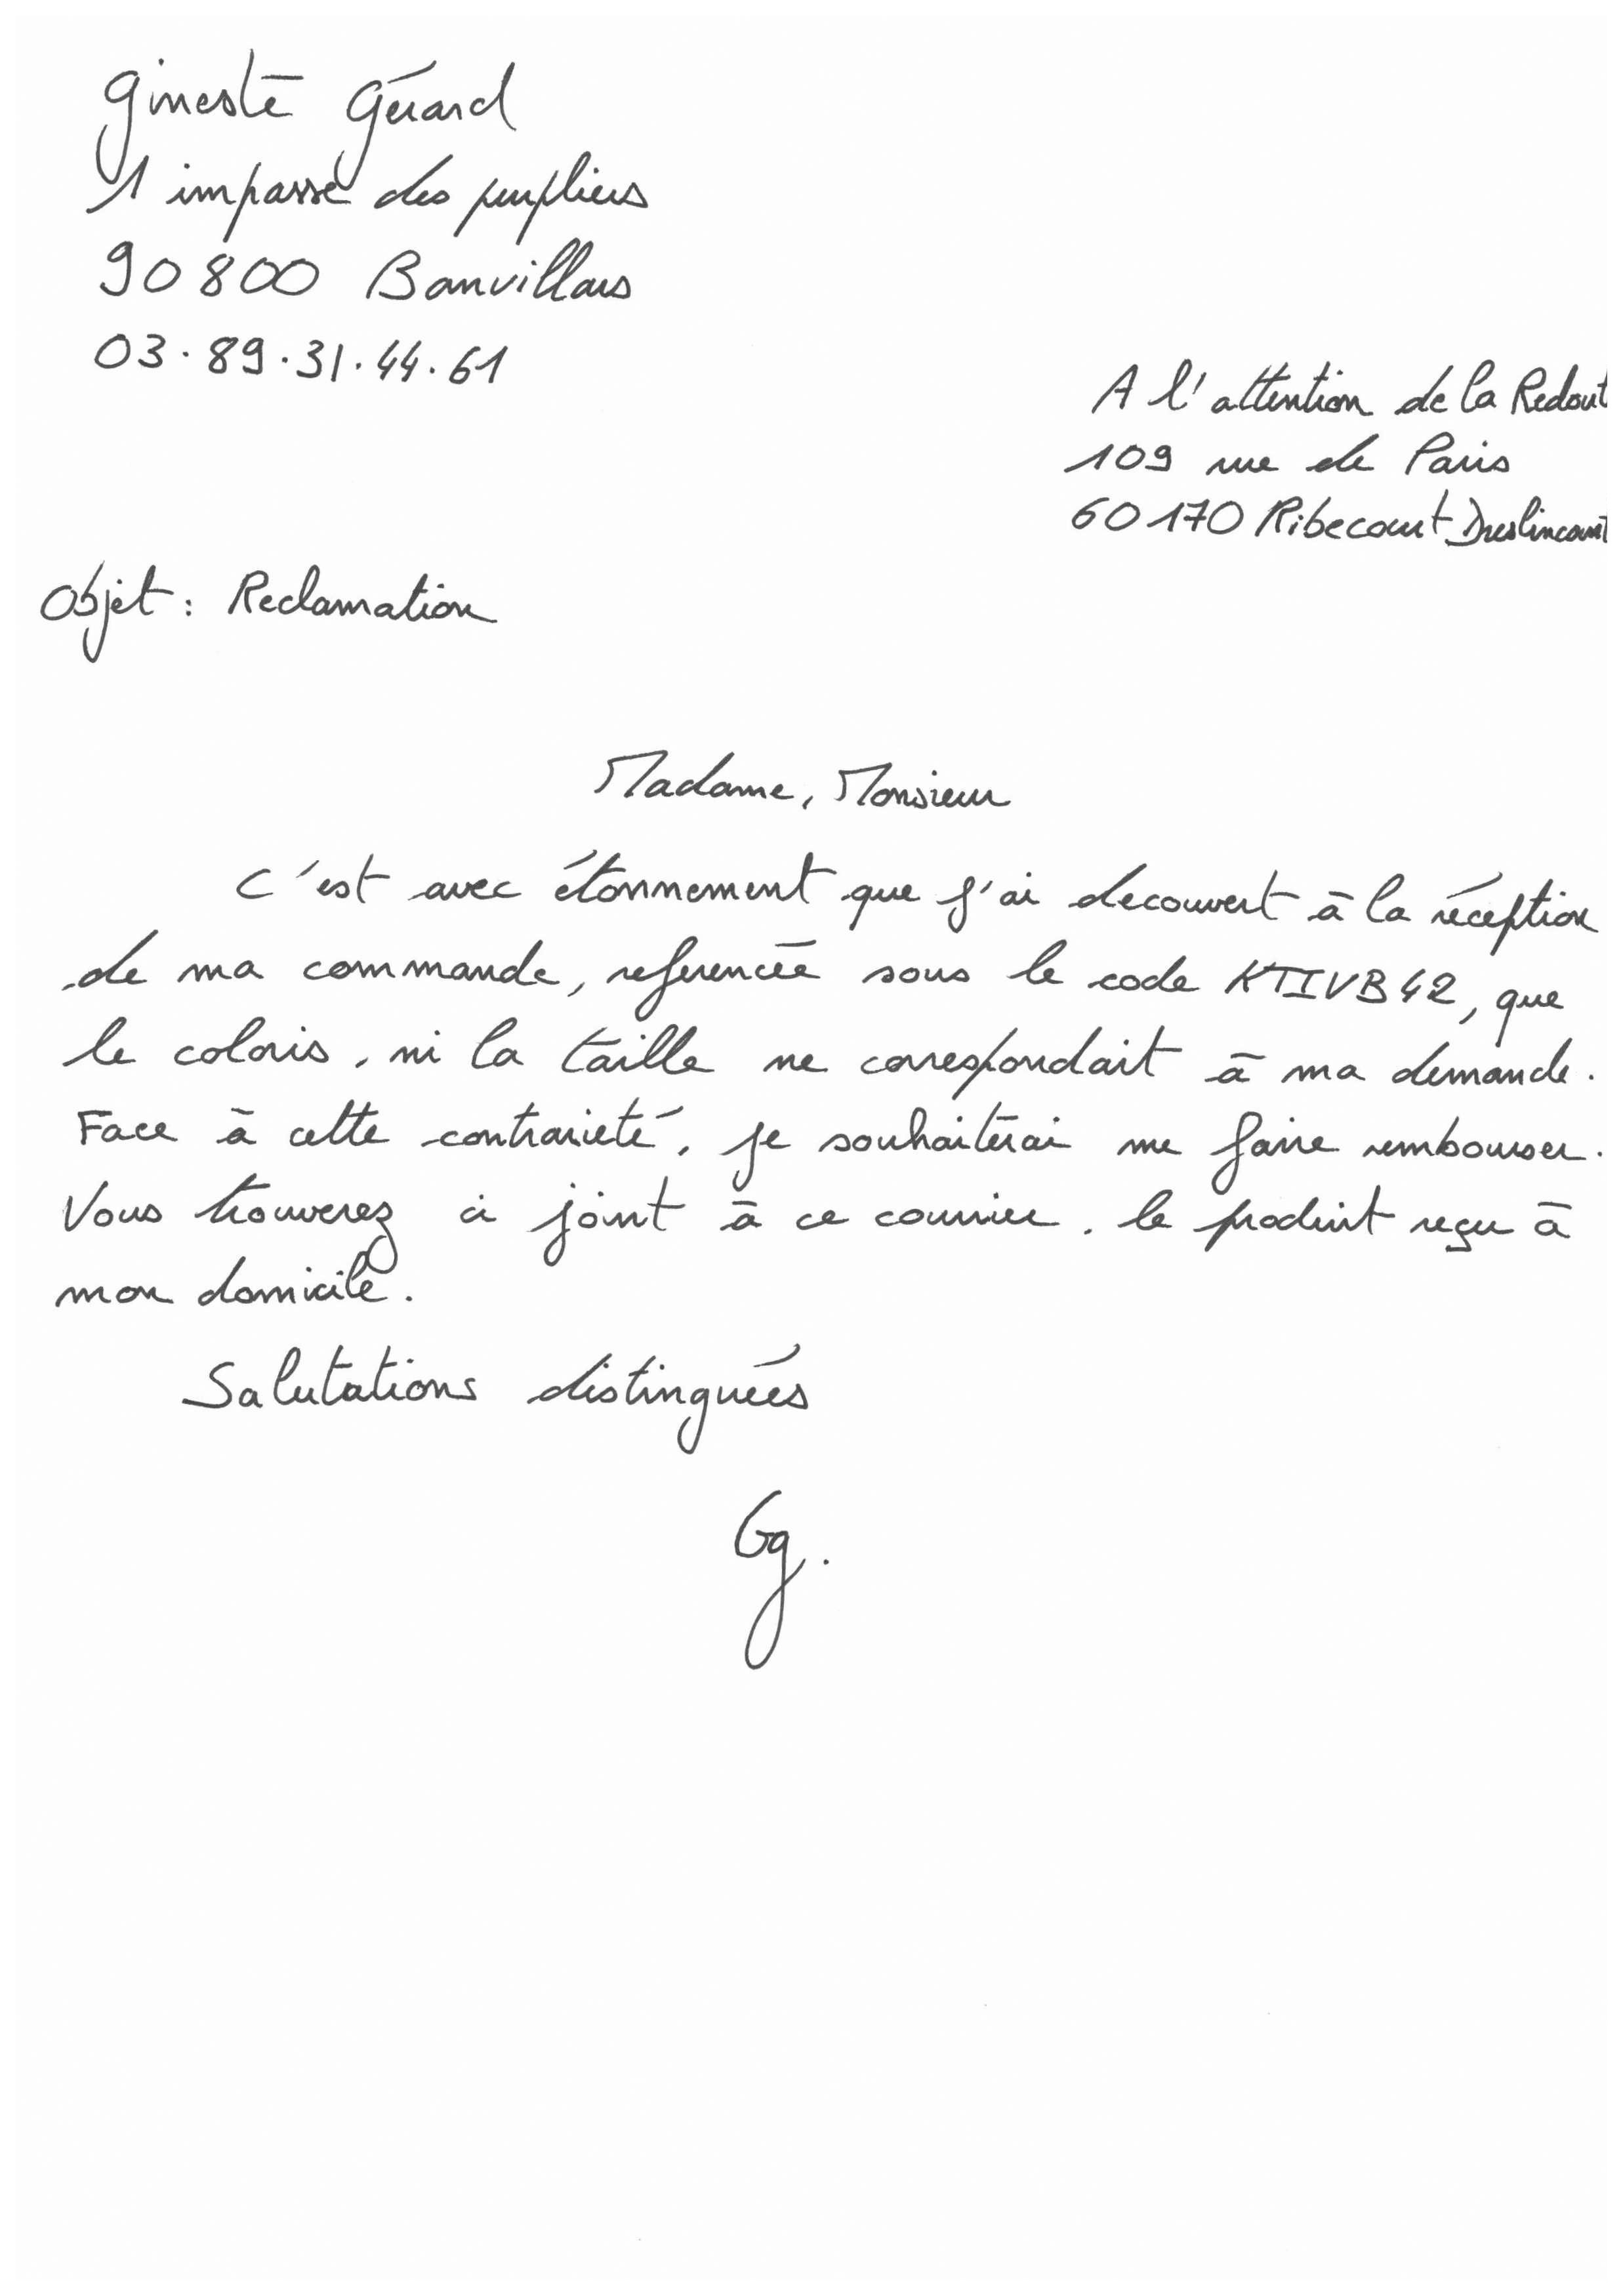 Gineste Gérard
1 impasse des peupliers
90800 Banvillars
03.89.31.44.61
A l'attention de la Redout
109 rue de Paris
60170 Ribecourt Dreslincourt
Objet : Reclamation
Madame, Monsieur
C'est avec étonnement que j'ai decouvert à la réception
de ma commande, referencée sous le code KTIVB42, que
le coloris, ni la taille ne correspondait à ma demande.
Face à cette contrarieté, je souhaiterai me faire rembourser.
Vous trouverez ci joint à ce courrier, le produit reçu à
mon domicile.
Salutations distinguées
Gg.